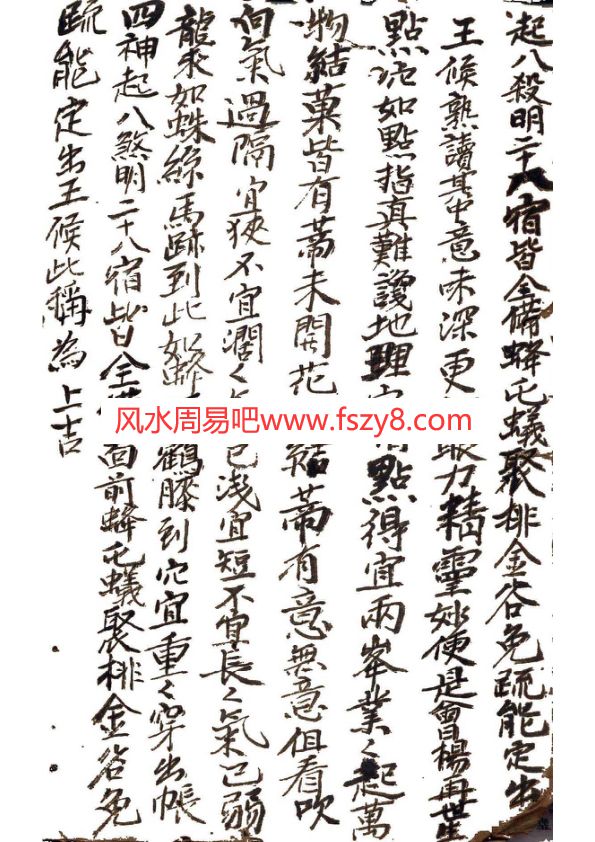 起八殺明二十八宿皆全備蜂屯蟻聚排金谷免疏能定出
王候熟讀其中意味深更眼力精靈妙便是曾楊再世生
點穴如點指真難謾地理點得宜兩峯業々起萬
物結菓皆有蒂未開花結蒂有意無意但看吹
何氣過隔宜狹不宜濶々已淺宜短不宜長々氣已弱
龍來如蛛絲馬跡到此如鶴膝到穴宜重々穿出帳
四神起八煞明二十八宿皆全面前蜂屯蟻聚排金谷免
疏能定出王候此稱為上吉
风水周易吧www.fszy8.com